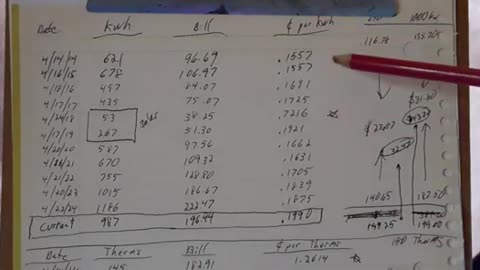 Date Kwh Bill ¢ per Kwh 1000 Kw
4/14/14 621 96.69 .1557 116.78 155.70
4/16/15 678 106.97 .1557
4/18/16 497 84.07 .1691
4/17/17 435 75.07 .1725 $31.80
4/24/18 53 38.25 .7216
4/17/19 267 solar 51.30 .1921 $22.87
4/20/20 587 97.56 .1662 32.47
4/20/21 670 109.32 .1631
4/21/22 755 128.80 .1705
4/20/23 1015 186.67 .1839
4/22/24 1186 222.47 .1875 140.65 187.50
Current 987 196.44 .1990
149.25 199.00
Date Therms Bill ¢ per Therms 180 Therms
145 182.91 1.2614